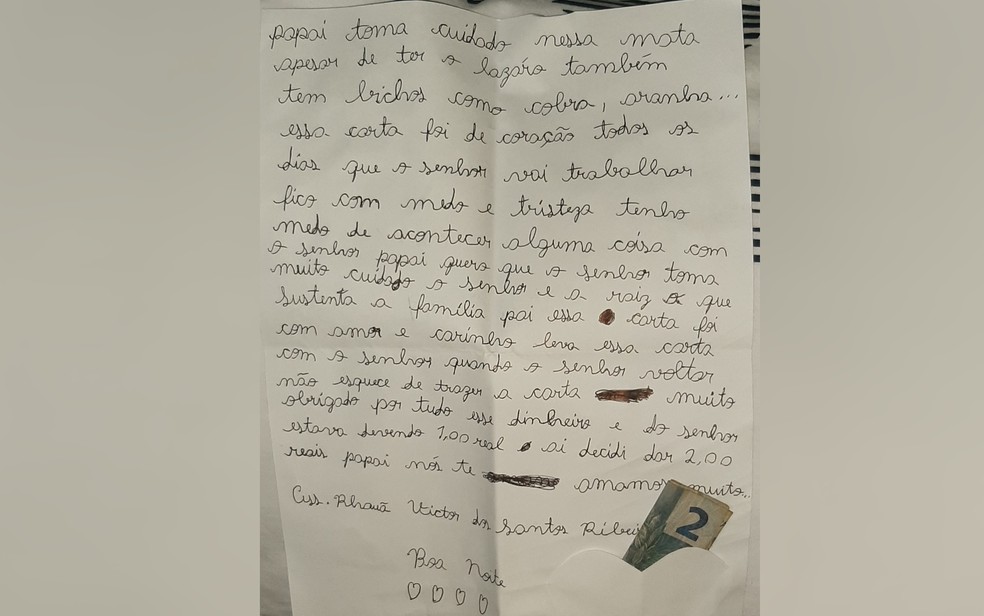 papai toma cuidado nessa mata
apesar de ter o lazáro também
tem bichos como cobra, aranha...
essa carta foi de coração todos os
dias que o senhor vai trabalhar
fico com medo e tristeza tenho
medo de acontecer alguma coisa com
o senhor papai quero que o senhor toma
muito cuidado o senhor e a raiz que
sustenta a família pai essa carta foi
com amor e carinho leva essa carta
com o senhor quando o senhor voltar
não esquece de trazer a carta muito
obrigado por tudo esse dinheiro e do senhor
estava devendo 1,00 real ai decidi dar 2,00
reais papai nós te amamos muito...
Ass. Rhauã Victor dos Santos Ribei
Boa Noite
2